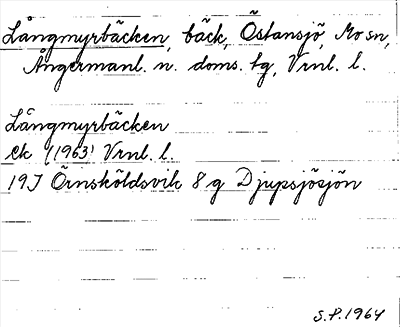 Långmyrbäcken, bäck, Östansjö, Mo sn,
Ångermanl. n. doms. tg, Vrnl. l.
Långmyrbäcken
ek (1963) Vrnl. l.
19J Örnsköldsvik 8 g Djupsjösjön
S.P. 1964